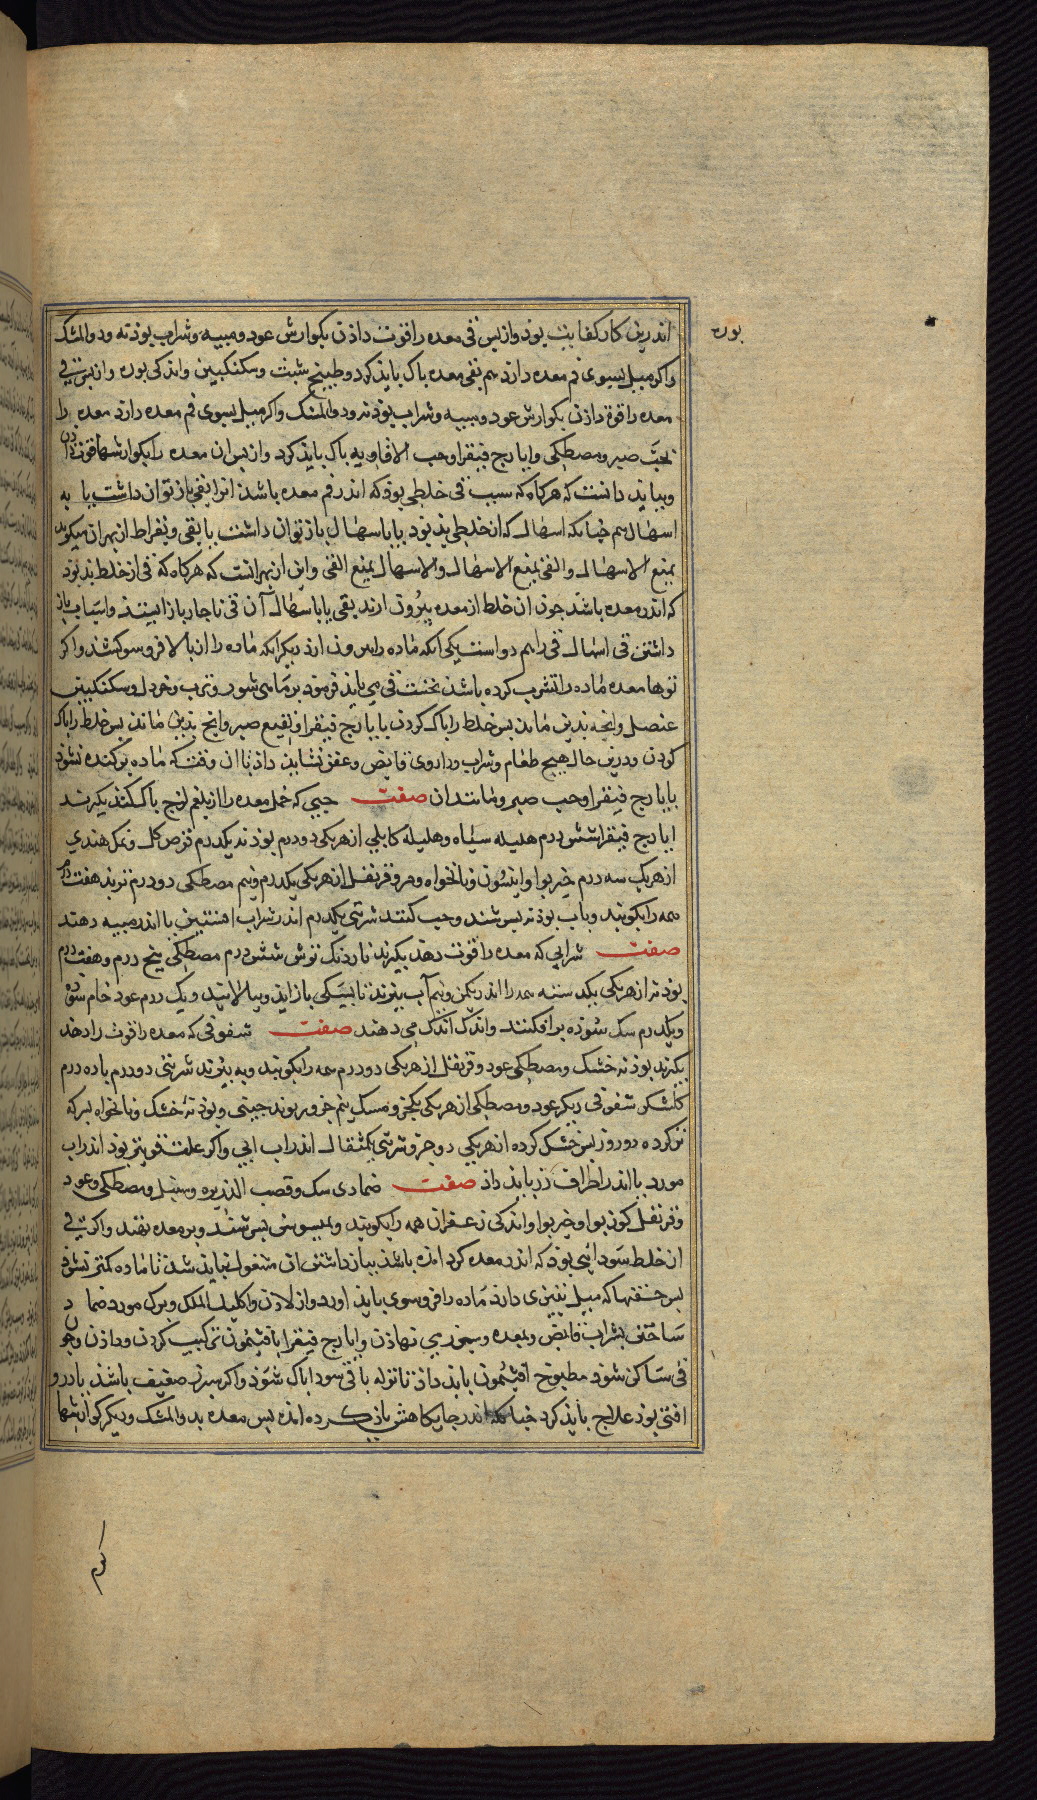 اندرین کار کفایت بوذ واز پس قی معده را قوت داذن بکوارش عود و میبه و شراب بوذنه ودوالمشک
بوره
واکر میل بسوی فم معده دارد هم بقی معده باک باید کرد و طبیخ شبت وسکنکبین واندکی بوره واز پس قی
معده را قوة داذن بکوارش عود و میبه و شراب بوذنه ودوالمشک واکر میل بسوی فم معده دارد معده را
بحب صبر ومصطکی وایارج فیقرا وحب الافاویه باک باید کرد واز پس ان معده را بکوارشها قوت داذن
وبباید دانست که هرکاه که سبب قی خلطی بوذ که اندر فم معده باشد انرا بقی باز توان داشت یا به
اسهال هم چنانکه اسهال که از خلطی بذ بوذ یا باسهال باز توان داشت یا بقی وبقراط از بهر ان میکوید
یمنع الاسهال والقی یمنع الاسهال والاسهال یمنع القی واین از بهر انست که هرکاه که قی از خلط بذ بوذ
که اندر معده باشد جون ان خلط از معده بیرون ارند بقی یا باسهال آن قی ناجار باز ایستد واسباب باز
داشتن قی اسهال قی را هم دو است یکی انکه ماده را دیکر انکه ماده را از بالا فرو سو کشند واکر
توها معده ماده را تشرب کرده باشد نخست قی می باید فرمود بر ماهی شور وترب وخردل وسکنکبین
عنصل وانجه بدین ماند بس خلط را باک کردن بایارج فیقرا ونقیع صبر وانج بدین ماند بس خلط را باک
کردن ودرین حال هیج طعام وشراب وداروی قابض وعفص نشاید داذ تا ان وقت که ماده برکنده نشوذ
بایارج فیقرا وحب صبر ومانند ان صفت حبی که خمل معده را از بلغم لزج باک کند بکیرند
ایارج فیقرا شش درم هلیله سیاه وهلیله کابلی از هریکی دو درم بوذنه یکدرم قرص کل ونمک هندی
از هریک سه درم خیربوا وانیسون ونانخواه ومر وقرنفل از هریکی یکدرم ونیم مصطکی دو درم تربد هفت درم
همه را بکوبند وباب بوذنه بسرشند وحب کنند شربتی یکدرم اندر شراب افسنتین یا اندر میبه دهند
صفت شرابی که معده را قوت دهد بکیرند ناردنک ترش شش درم مصطکی پنج درم وهفت درم
بوذنه از هریکی یکدسته همه را اندر یکمن ونیم آب ببزند تا بیکی باز اید وببالایند ویک درم عود خام سوده
ویکدرم سک سوذه برافکنند واندک اندک می دهند صفت سفوفی که معده را قوت را دهد
بکیرند بوذنه خشک ومصطکی عود وقرنفل از هریکی دو درم همه را بکوبند وبه بیزند شربتی دو درم با ده درم
کلشکر سفوفی دیکر عود ومصطکی از هریکی یکجزو مسک نیم جزو ریوند جینی وبوذنه خشک ونانخواه بسرکه
تر کرده دو روز بس خشک کرده از هریکی دو جزو شربتی یکمثقال اندر اب ابی واکر علت قویتر بوذ اندر اب
مورد یا اندر اطراف رز باید داذ صفت ضمادی سک وقصب الذریره وسنبل ومصطکی وعود
وقرنفل کوزبوا وخیربوا واندکی زعفران همه را بکوبند وبمیسوسن بسرشند وبر معده نهند واکر قی
از خلط سودایی بوذ که اندر معده کرد امده باشد بباز داشتن ان مشغول نباید شد تا ماده کمتر نشوذ
بس حقنها که میل بتیزی دارد ماده را فرو سوی باید اورد واز لادن واکلیل الملک وبرک مورد ضماد
ساختن بشراب قابض وبمعده وسپرز بر نهاذن وایارج فیقرا با فتیمون ترکیب کردن وداذن وجون
قی ساکن شوذ مطبوخ افتیمون باید داذ تا توله باقی سودا باک شوذ واکر سپرز ضعیف باشد یا درو
افتی بوذ علاج باید کرد جنانکه اندر جایکاهش یاذ کرده امده بس معده بدوالمشک ودیکر کوارشها
کرم